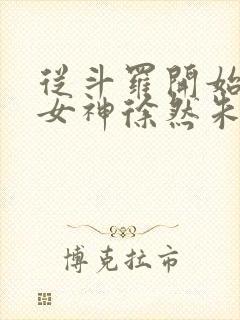 從斗羅開始
女神徐然朱
博克拉市